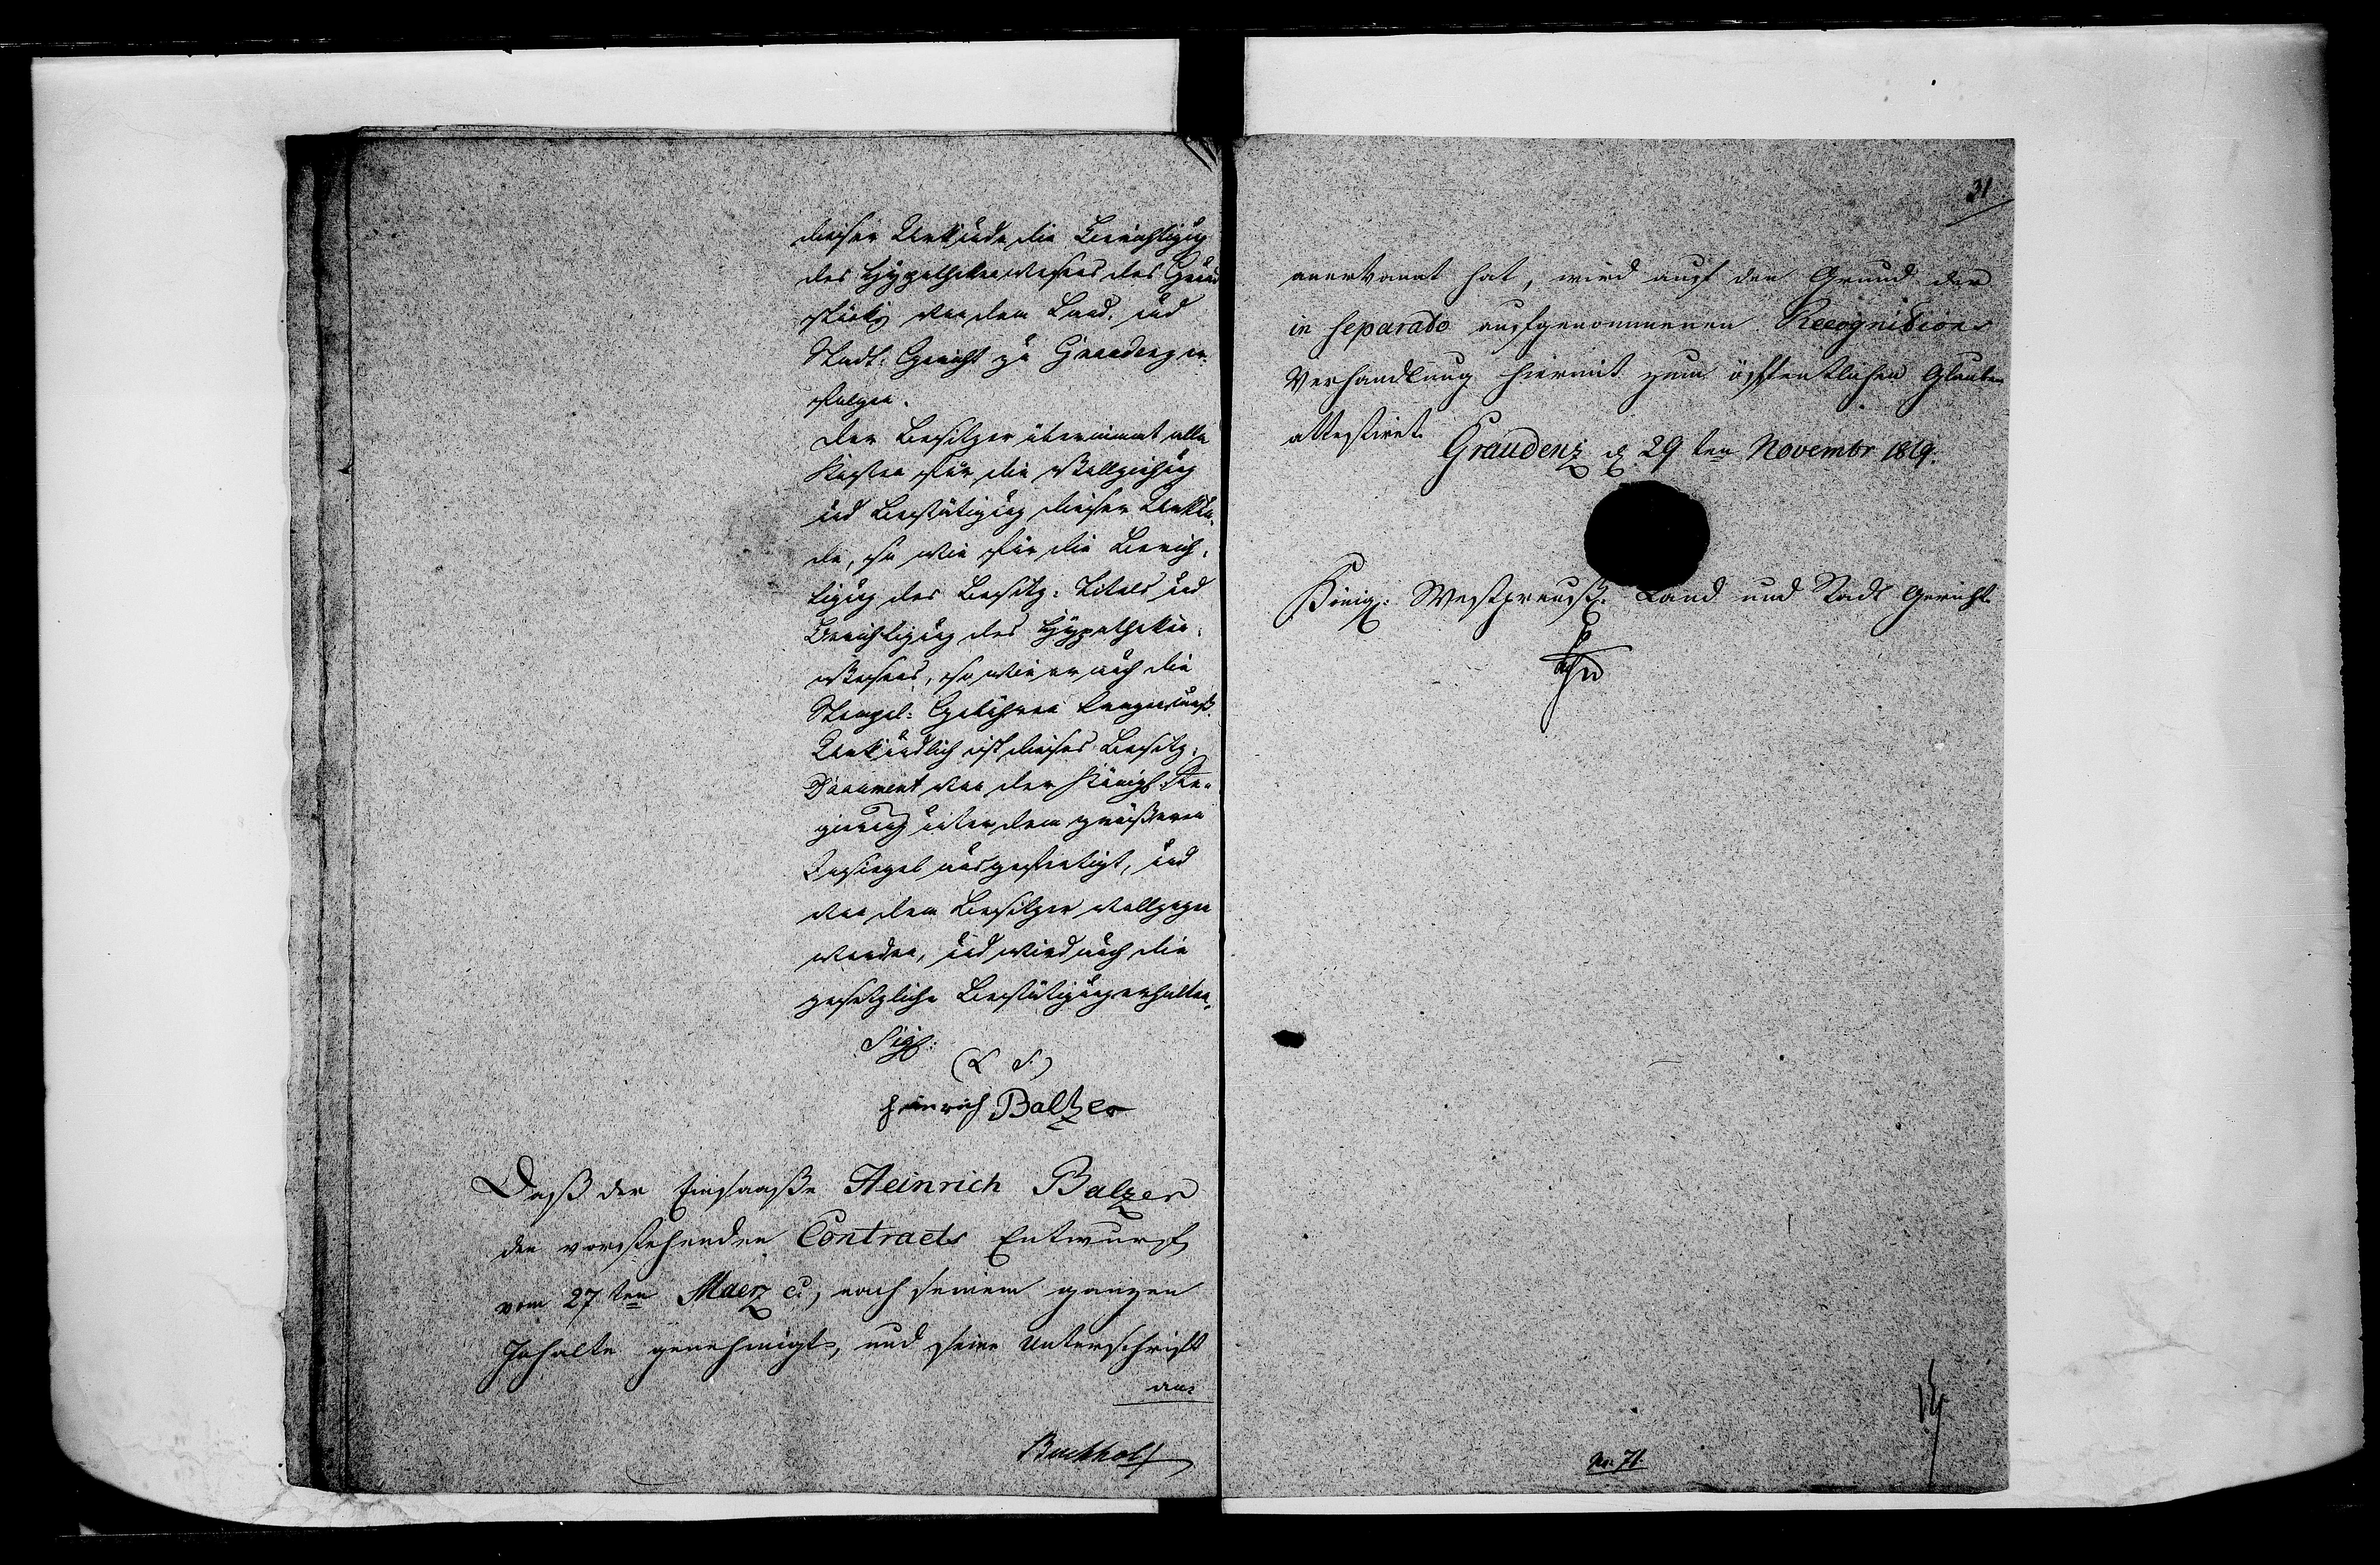 dieser Urkunde die Berichtigung
des Hypothekenwesens des Grund
stücks von dem Land- und
Stadt-Gericht zu Graudenz er-
folgen.
Der Besitzer übernimmt alle
Kosten für die Vollziehung
und Bestätigung dieser Urkun-
de, so wie für die Berich-
tigung des Besitz-Titels und
Berichtigung des Hypotheken-
Wesens, so wie er auch die
Stempel-Gebühren tragen muß.
Urkundlich ist dieses Besitz-
Document von der Königl. Re-
gierung unter dem größeren
Insiegel ausgefertigt, und
von dem Besitzer vollzogen
worden, und wird auch die
gesetzliche Bestätigung erhalten.
Sig:
(L S.)
Heinrich Baltzer
Daß der Einsaaße Heinrich Balzer
den vorstehenden Contracts Entwurf
vom 27ten Maerz c., nach seinem ganzen
Inhalte genehmigt, und seine Unterschrift
an-
Buchholz
31.
anerkannt hat, wird auf den Grund der
in separato aufgenommenen Recognitions
Verhandlung hiermit zum öffentlichen Glauben
attestiret.
Graudenz d. 29ten Novembr 1819.
Königl. Westpreuß. Land und Stadt Gericht
No 71.